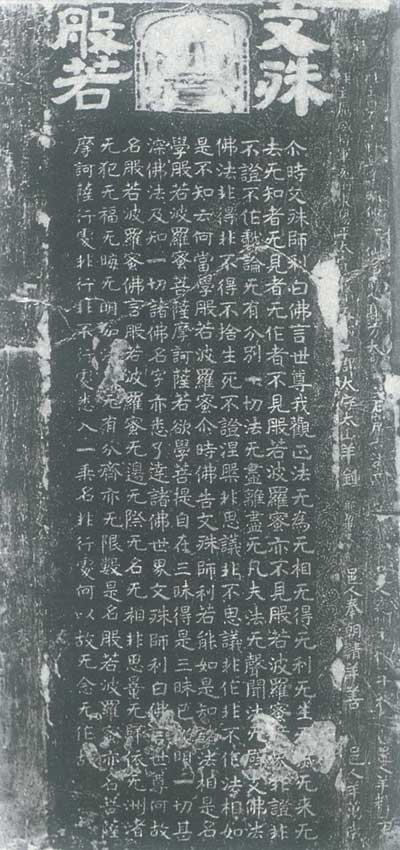 文殊
般若
尒時文殊師利白佛言世尊我觀正法无為无相无得无利无生无滅无來无
去无知者无見者无作者不見般若波羅蜜亦不見般若波羅蜜境界非證非
不證不作戲論无有分別一切法无盡離盡无凡夫法无聲聞法无辟支佛法
佛法非得非不得不捨生死不證涅槃非思議非不思議非作非不作法相如
是不知云何當學般若波羅蜜尒時佛告文殊師利若能如是知諸法相是名
學般若波羅蜜菩薩摩訶薩若欲學菩提自在三昧得是三昧已照明一切甚
深佛法及知一切諸佛名字亦悉了達諸佛世界文殊師利白佛言世尊何故
名般若波羅蜜佛言般若波羅蜜无邊无際无名无相非思量无歸依无洲渚
无犯无福无晦无明如法界无有分齊亦无限數是名般若波羅蜜亦名菩薩
摩訶薩行處非行非不行處悉入一乘名非行處何以故无念无作故
大字太山羊鍾
邑人奉朝請羊善